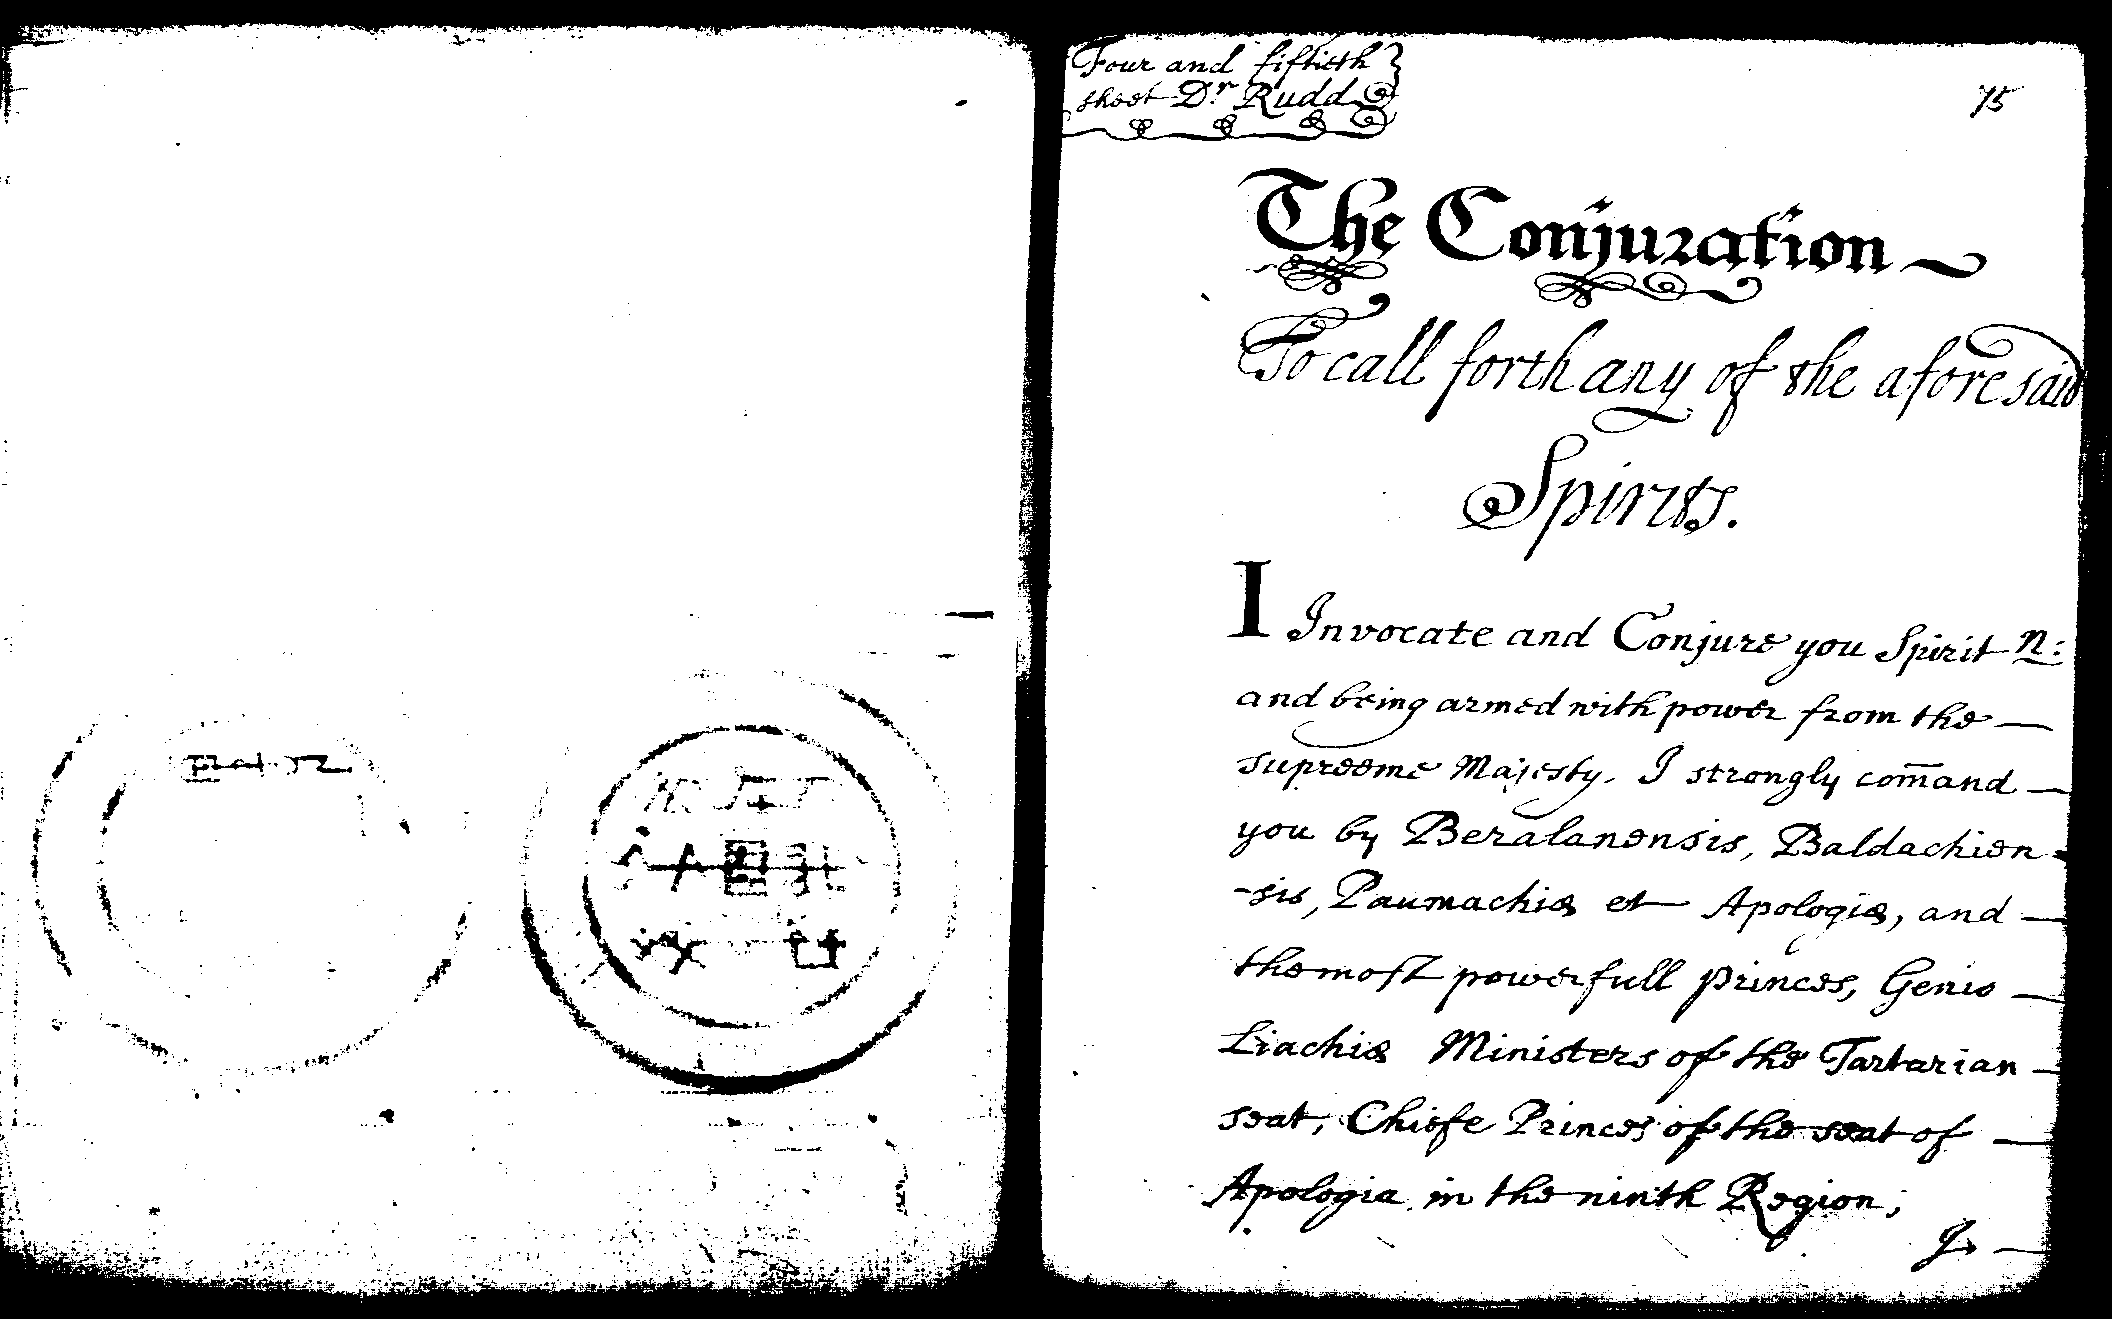 Four and fiftieth
sheet Dr Rudd
75
The Conjuration
To call forth any of the aforesaid
Spirits.
I Invocate and Conjure you Spirit N:
and being armed with power from the —
supreeme Majesty. I strongly com̄and —
you by Beralanensis, Baldachien-
-sis, Paumachiæ et Apologiæ, and —
the most powerfull princes, Genio —
Liachiæ Ministers of the Tartarian —
seat, Chiefe Princes of the seat of —
Apologia in the ninth Region;